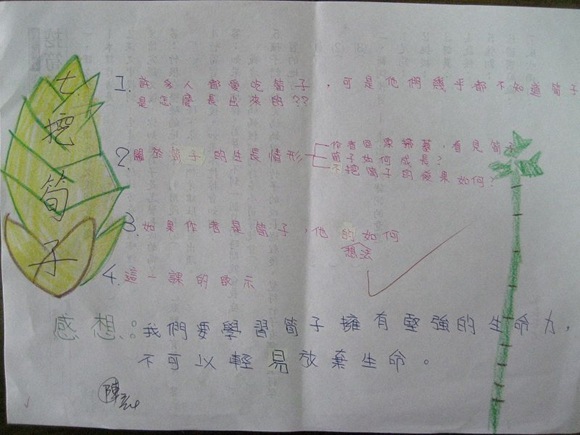 七、挖筍子
1. 許多人都愛吃筍子,可是他們幾乎都不知道筍子
是怎麼長出來的??
2. 筍子的生長情形
筍子如何成長?
挖筍子的效果如何?
3. 如果作者是筍子,他的想法如何
4. 這一課的啟示
感想:我們要學習筍子擁有堅強的生命力,
不可以輕易放棄生命。
陳